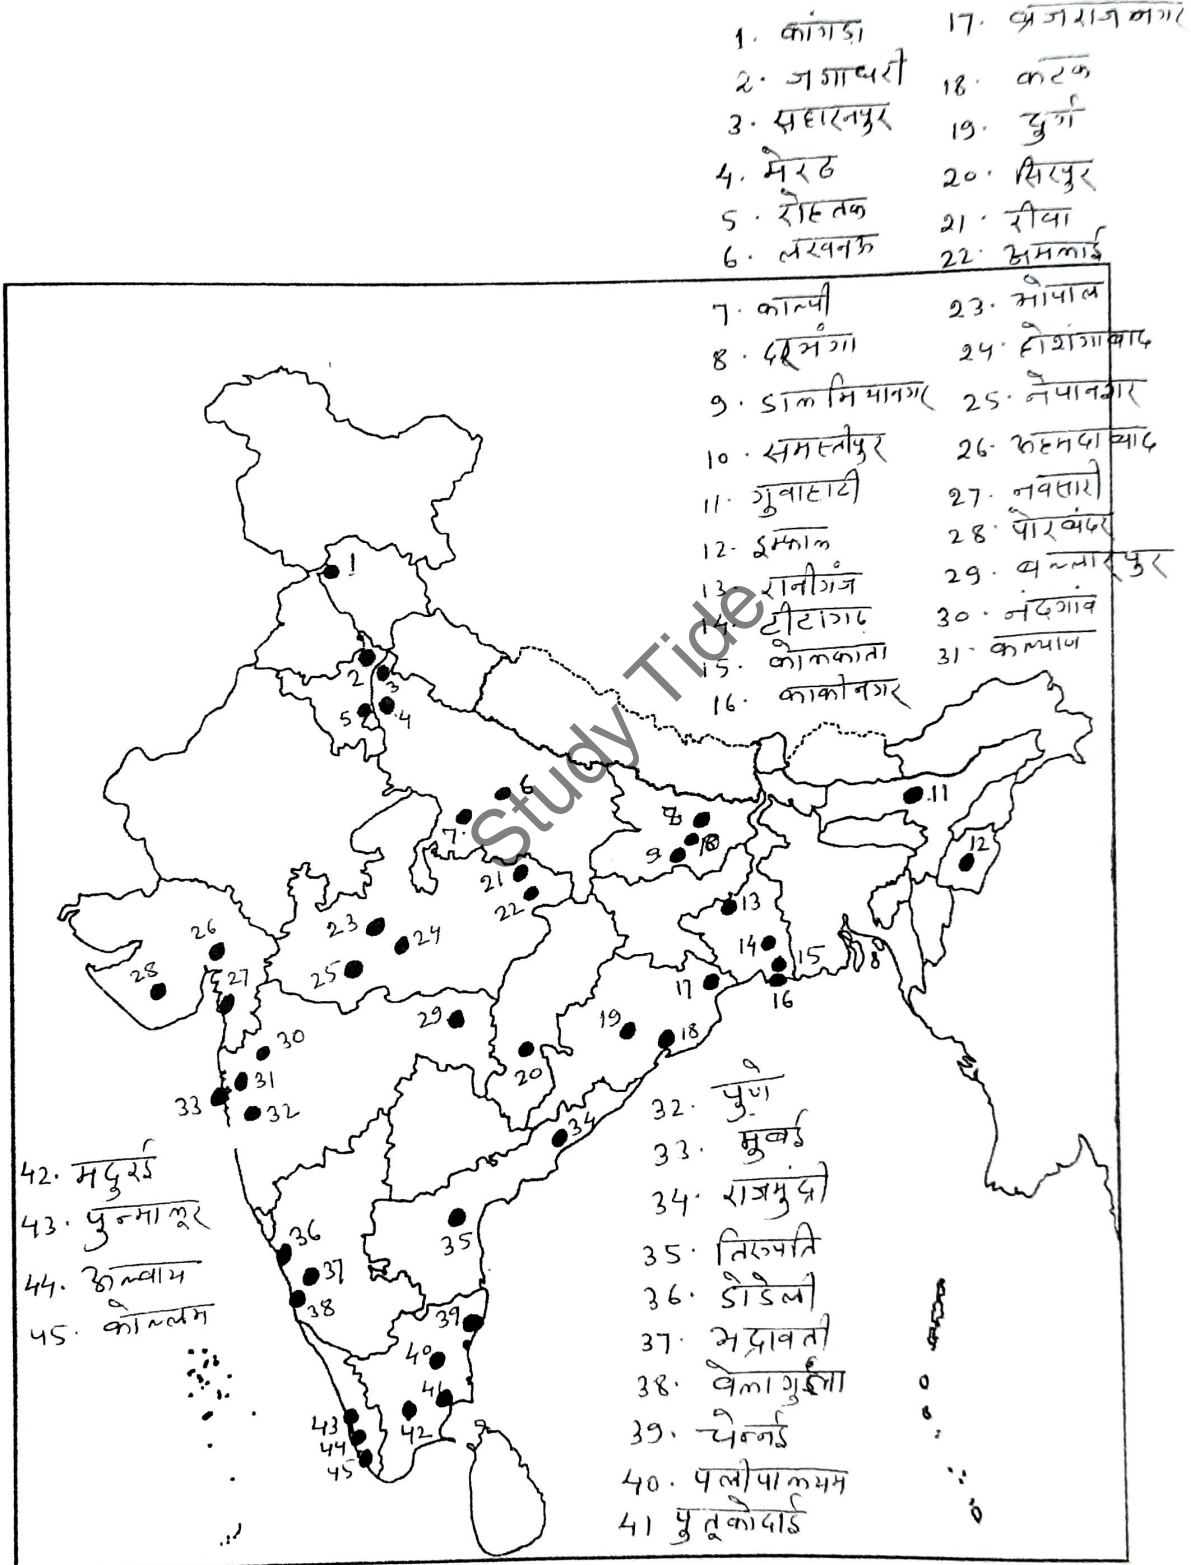 1. कांगड़ा
2. जगाधरी
3. सहारनपुर
4. मेरठ
5. रोहतक
6. लखनऊ
7. काल्पी
8. दरभंगा
9. डालमियानगर
10. समस्तीपुर
11. गुवाहाटी
12. इम्फाल
13. रानीगंज
14. टीटागढ़
15. कोलकाता
16. काकीनगर
17. ब्रजराजनगर
18. कटक
19. दुर्ग
20. सिरपुर
21. रीवा
22. अमलाई
23. भोपाल
24. होशंगाबाद
25. नेपानगर
26. अहमदाबाद
27. नवसारी
28. पोरबंदर
29. बल्लारपुर
30. नंदगांव
31. कल्याण
1
2
3
5
4
6
7
8
10
9
11
12
21
22
13
23
24
25
26
27
28
14
15
16
17
29
19
18
20
30
31
33
32
34
35
36
37
38
39
40
41
42
43
44
45
Study Tide
32. पुणे
33. मुंबई
34. राजमुंद्री
35. तिरुपति
36. डोडेली
37. भद्रावती
38. बेलागुला
39. चेन्नई
40. पलीपालयम
41 पुतूकोदाई
42. मदुरई
43. पुन्मालूर
44. अल्वाय
45. कोल्लम